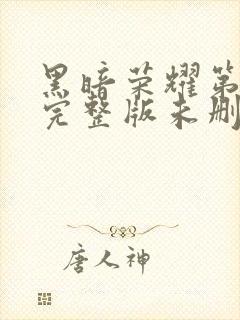 黑暗荣耀第
完整版未删
唐人神